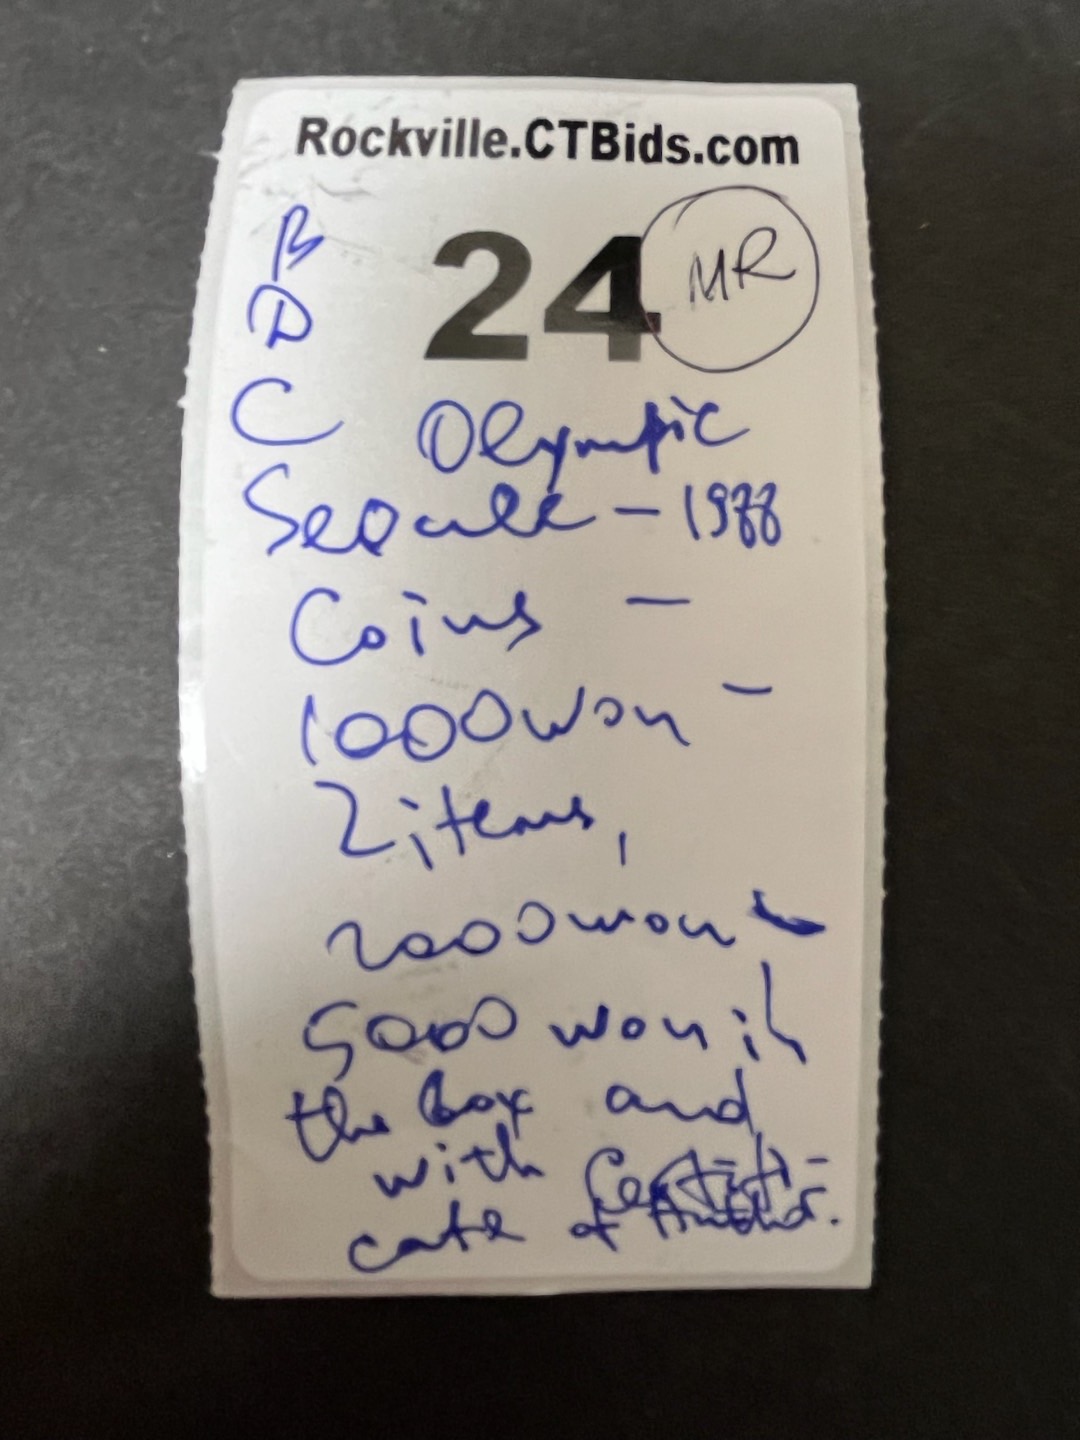 Rockville.CTBids.com
B
D
24
MR
C Olympic
Seoull - 1988
Coins -
1000 won -
2 items,
2000 won -
5000 won in
the box and
with Certifi-
cate of Author.